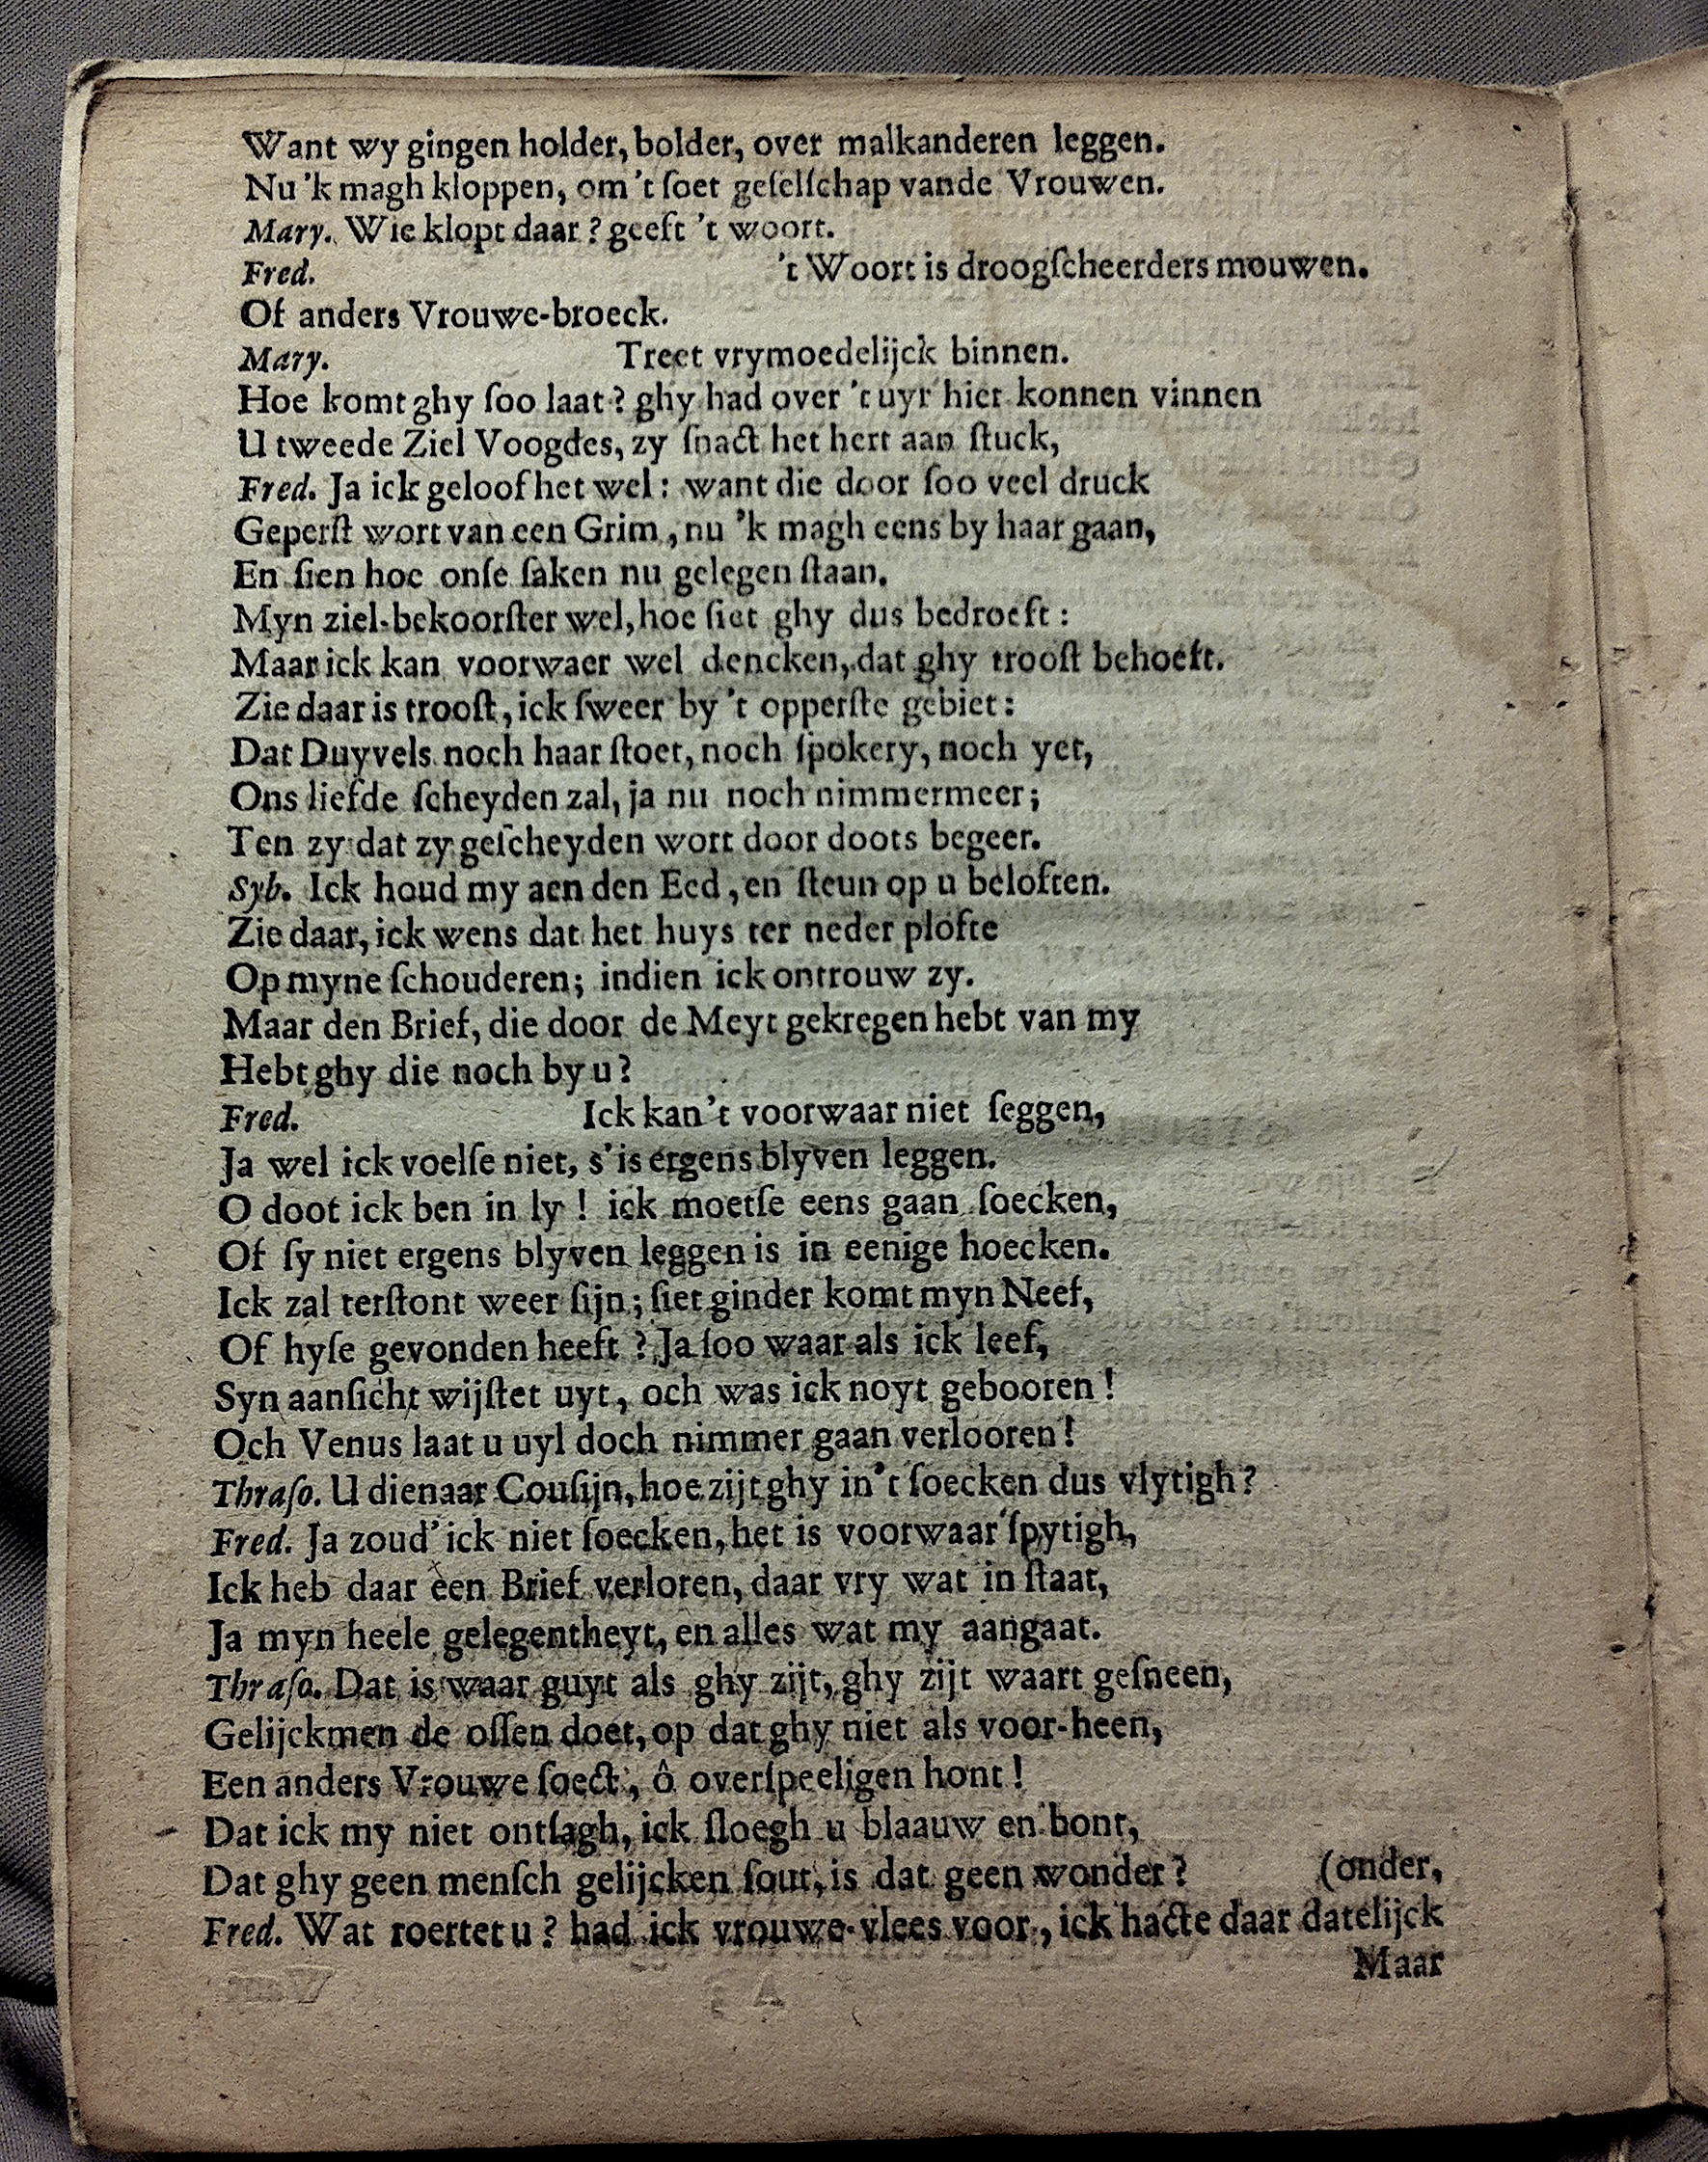 Want wy gingen holder, bolder, over malkanderen leggen.
Nu 'k magh kloppen, om 't ſoet geſelſchap vande Vrouwen.
Mary. Wie klopt daar? geeft 't woort.
Fred. 't Woort is droogſcheerders mouwen.
Of anders Vrouwe-broeck.
Mary. Treet vrymoedelijck binnen.
Hoe komt ghy ſoo laat? ghy had over 't uyr hier konnen vinnen
U tweede Ziel Voogdes, zy ſnact het hert aan ſtuck,
Fred. Ja ick geloof het wel: want die door ſoo veel druck
Geperſt wort van een Grim, nu 'k magh eens by haar gaan,
En ſien hoe onſe ſaken nu gelegen ſtaan.
Myn ziel-bekoorſter wel, hoe ſiet ghy dus bedroeft:
Maar ick kan voorwaer wel dencken, dat ghy trooſt behoeft.
Zie daar is trooſt, ick ſweer by 't opperſte gebiet:
Dat Duyvels noch haar ſtoet, noch ſpokery, noch yet,
Ons liefde ſcheyden zal, ja nu noch nimmermeer;
Ten zy dat zy geſcheyden wort door doots begeer.
Syb. Ick houd my aen den Eed, en ſteun op u beloften.
Zie daar, ick wens dat het huys ter neder plofte
Op myne ſchouderen; indien ick ontrouw zy.
Maar den Brief, die door de Meyt gekregen hebt van my
Hebt ghy die noch by u?
Fred. Ick kan 't voorwaar niet ſeggen,
Ja wel ick voelſe niet, s'is ergens blyven leggen.
O doot ick ben in ly! ick moetſe eens gaan ſoecken,
Of ſy niet ergens blyven leggen is in eenige hoecken.
Ick zal terſtont weer ſijn; ſiet ginder komt myn Neef,
Of hyſe gevonden heeft? Ja ſoo waar als ick leef,
Syn aanſicht wijſtet uyt, och was ick noyt gebooren!
Och Venus laat u uyl doch nimmer gaan verlooren!
Thraſo. U dienaar Couſijn, hoe zijt ghy in 't ſoecken dus vlytigh?
Fred. Ja zoud' ick niet ſoecken, het is voorwaar ſpytigh,
Ick heb daar een Brief verloren, daar vry wat in ſtaat,
Ja myn heele gelegentheyt, en alles wat my aangaat.
Thraſo. Dat is waar guyt als ghy zijt, ghy zijt waart geſneen,
Gelijckmen de oſſen doet, op dat ghy niet als voor-heen,
Een anders Vrouwe ſoect, ô overſpeeligen hont!
Dat ick my niet ontſagh, ick ſloegh u blaauw en bont,
Dat ghy geen menſch gelijcken ſout, is dat geen wonder? (onder,
Fred. Wat roertet u? had ick vrouwe-vlees voor, ick hacte daar datelijck
Maar